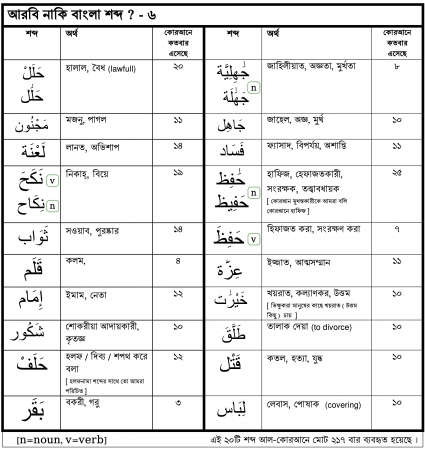 আরবি নাকি বাংলা শব্দ ? - ৬
শব্দ অর্থ কোরআনে কতবার এসেছে শব্দ অর্থ কোরআনে কতবার এসেছে
حَلَٰلْ
حَلَٰل
হালাল, বৈধ (lawfull)
২০
جَٰهِلِيَّة
جَهَٰلَة n
জাহিলীয়াত, অজ্ঞতা, মুর্খতা
৮
مَجْنُون
মজনু, পাগল
১১
جَاهِل
জাহেল, অজ্ঞ, মুর্খ
১০
لَعْنَة
লানত, অভিশাপ
১৪
فَسَاد
ফ্যাসাদ, বিপর্যয়, অশান্তি
১১
نَكَحَ v
نِكَاح n
নিকাহ্, বিয়ে
১৯
حَٰفِظ
حَفِيظ n
হাফিজ, হেফাজতকারী,
সংরক্ষক, তত্ত্বাবধায়ক
[ কোরআন মুখস্তকারীকে আমরা বলি
কোরআনে হাফিজ ]
২৫
ثَوَاب
সওয়াব, পুরষ্কার
১৪
حَفِظَ v
হিফাজত করা, সংরক্ষণ করা
৭
قَلَم
কলম,
৪
عِزَّة
ইজ্জত, আত্মসম্মান
১১
إِمَام
ইমাম, নেতা
১২
خَيْرَٰت
খয়রাত, কল্যাণকর, উত্তম
[ ভিক্ষুকরা মানুষের কাছে খয়রাত ( উত্তম
কিছু ) চায় ]
১০
شَكُور
শোকরীয়া আদায়কারী,
কৃতজ্ঞ
১০
طَلَّقَ
তালাক দেয়া (to divorce)
১০
حَلَفْ
হলফ / দিব্য / শপথ করে
বলা
[ হলফনামা শব্দের সাথে তো আমরা
পরিচিত ]
১২
قَتْل
কতল, হত্যা, যুদ্ধ
১০
بَقَر
বকরী, গরু
৩
لِبَاس
লেবাস, পোষাক (covering)
১০
[n=noun, v=verb]
এই ২০টি শব্দ আল-কোরআনে মোট ২১৭ বার ব্যবহৃত হয়েছে ।